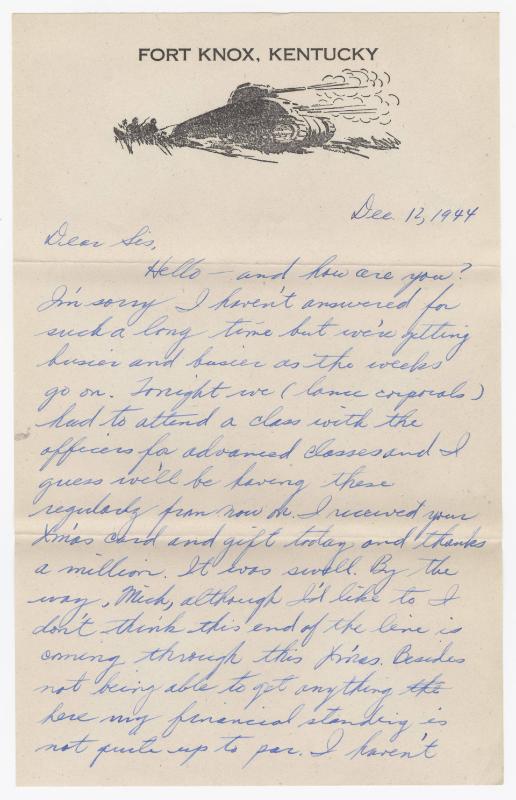 FORT KNOX, KENTUCKY
Dec. 12, 1944
Dear Sis,
Hello — and how are you?
I'm sorry I haven't answered for
such a long time but we're getting
busier and busier as the weeks
go on. Tonight we (lance corporals)
had to attend a class with the
officers for advanced classes and I
guess we'll be having these
regularly from now on. I received your
Xmas card and gift today and thanks
a million. It was swell. By the
way, Mich, although I'd like to I
don't think this end of the line is
coming through this Xmas. Besides
not being able to get anything the
here my financial standing is
not quite up to par. I haven't